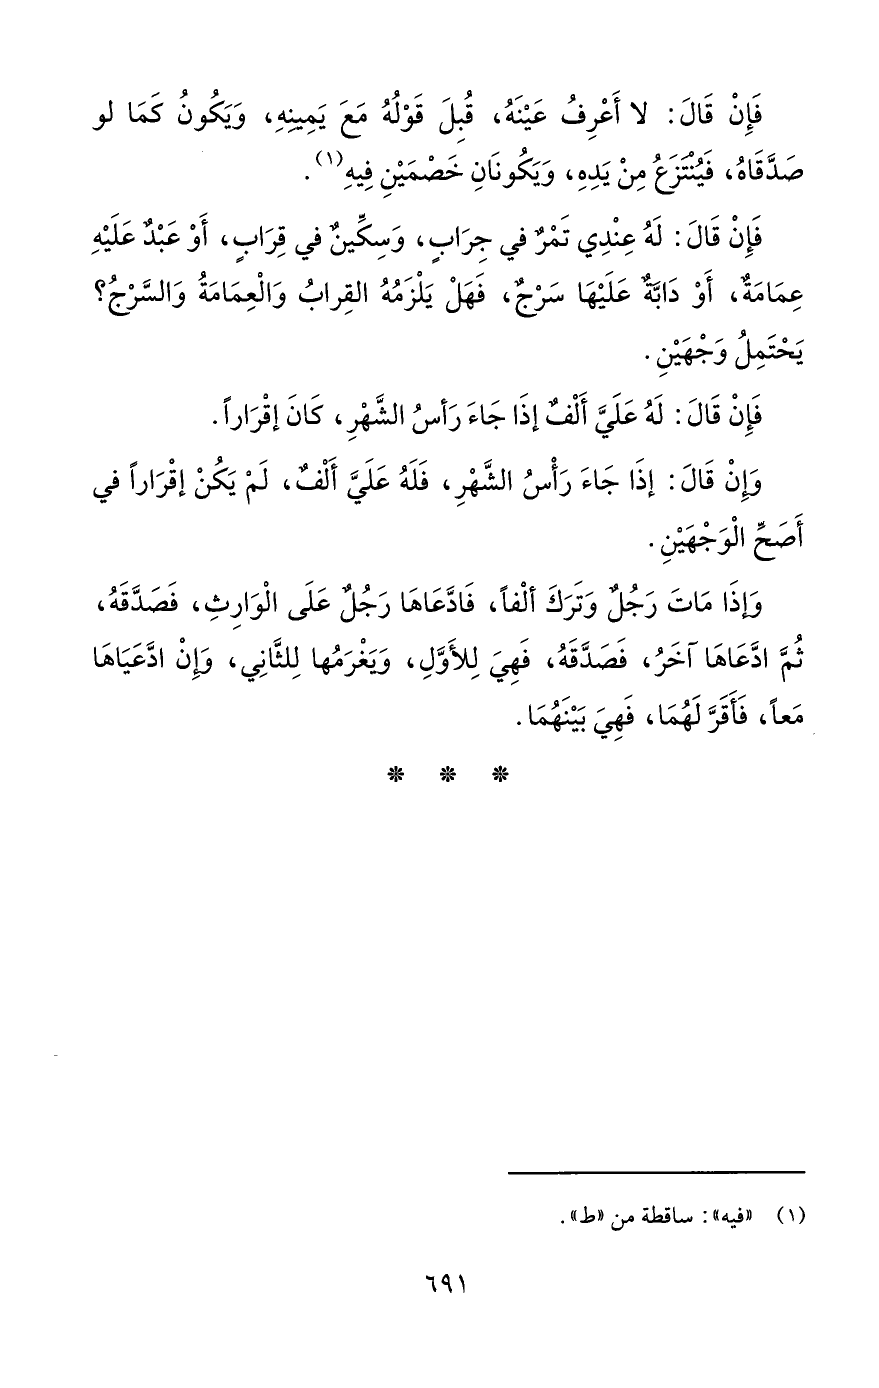 فَإِنْ قَالَ: لا أَعْرِفُ عَيْنَهُ، قُبِلَ قَوْلُهُ مَعَ يَمِينِهِ، وَيَكُونُ كَمَا لو
صَدَّقَاهُ، فَيُنْتَزَعُ مِنْ يَدِهِ، وَيَكُونَانِ خَصْمَيْنِ فِيهِ(١).
فَإِنْ قَالَ: لَهُ عِنْدِي تَمْرٌ في جِرَابٍ، وَسِكِّينٌ في قِرَابٍ، أَوْ عَبْدٌ عَلَيْهِ
عِمَامَةٌ، أَوْ دَابَّةٌ عَلَيْهَا سَرْجٌ، فَهَلْ يَلْزَمُهُ القِرابُ وَالْعِمَامَةُ وَالسَّرْجُ؟
يَحْتَمِلُ وَجْهَيْنِ.
فَإِنْ قَالَ: لَهُ عَلَيَّ أَلْفٌ إذَا جَاءَ رَأسُ الشَّهْرِ، كَانَ إقْرَاراً.
وَإِنْ قَالَ: إذَا جَاءَ رَأْسُ الشَّهْرِ، فَلَهُ عَلَيَّ أَلْفٌ، لَمْ يَكُنْ إقْرَاراً في
أَصَحِّ الْوَجْهَيْنِ.
وَإذَا مَاتَ رَجُلٌ وَتَرَكَ ألْفاً، فَادَّعَاهَا رَجُلٌ عَلَى الْوَارِثِ، فَصَدَّقَهُ،
ثُمَّ ادَّعَاهَا آخَرُ، فَصَدَّقَهُ، فَهِيَ لِلأَوَّلِ، وَيَغْرَمُها لِلثَّانِي، وَإِنْ ادَّعَيَاهَا
مَعاً، فَأَقَرَّ لَهُمَا، فَهِيَ بَيْنَهُمَا.
* * *
(١) «فيه»: ساقطة من «ط».
٦٩١